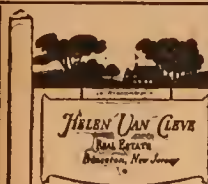 HELEN VAN CLEVE
REAL ESTATE
Princeton, New Jersey